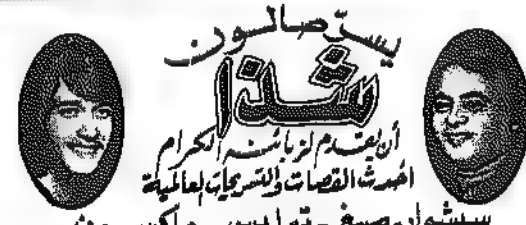 يسرّ صالون
شذا
أن يقدم لزبائنه الكرام
أحدث القصات والتسريحات العالمية
سيشوار - صبغ -